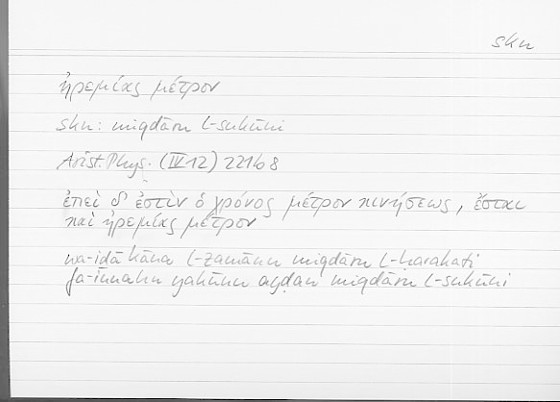 skn
ἠρεμίας μέτρον
skn: miqdāru l-sukūni
Arist. Phys. (IV 12) 221b8
ἐπεὶ δ' ἐστὶν ὁ χρόνος μέτρον κινήσεως, ἔσται
καὶ ἠρεμίας μέτρον
wa-iḏā kāna l-zamānu miqdāra l-ḥarakati
fa-innahu yakūnu ayḍan miqdāra l-sukūni